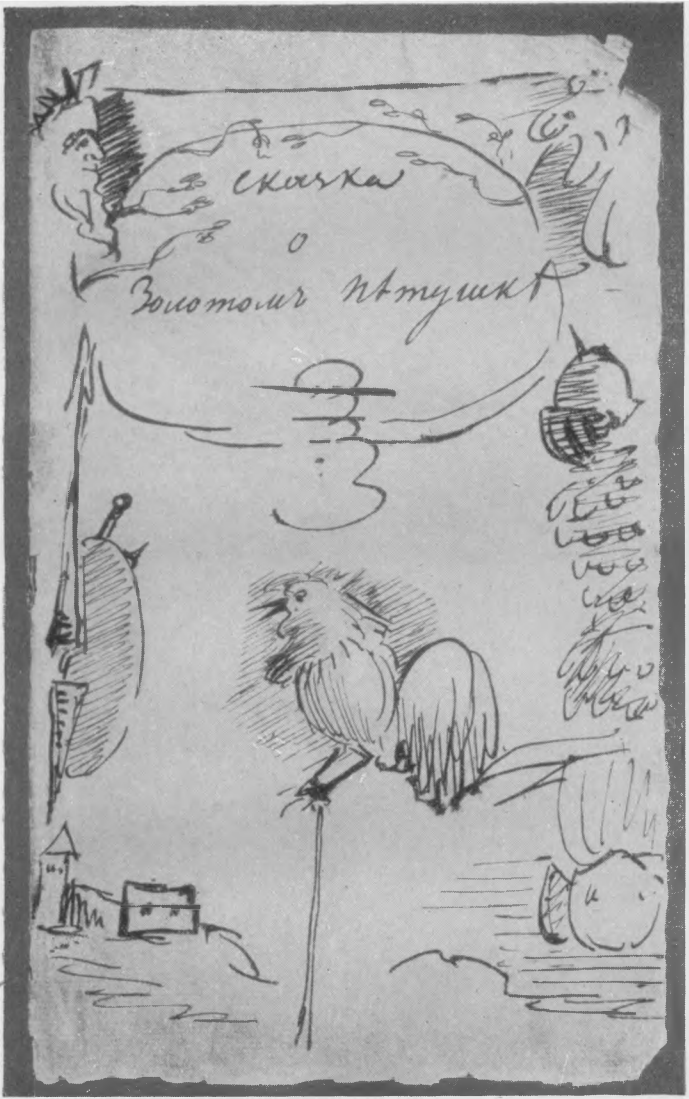 сказка
о
Золотомъ пѣтушкѣ